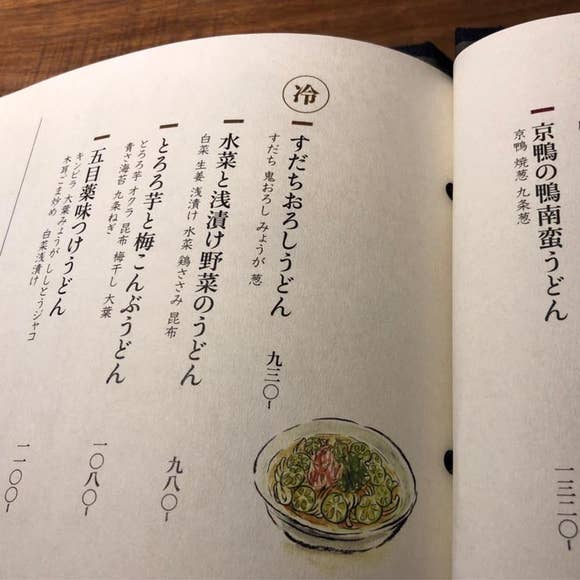 京鴨の鴨南蛮うどん
京鴨 焼葱 九条葱
一三二〇-
冷
すだちおろしうどん
すだち 鬼おろし みょうが 葱
九三〇-
水菜と浅漬け野菜のうどん
白菜 生姜 浅漬け 水菜 鶏ささみ 昆布
九八〇-
とろろ芋と梅こんぶうどん
とろろ芋 オクラ 昆布 梅干し 大葉
青さ海苔 九条ねぎ
一〇八〇-
五目薬味つけうどん
キンピラ 大葉みょうが ししとうジャコ
木耳ごま炒め 白菜浅漬け
一一〇〇-